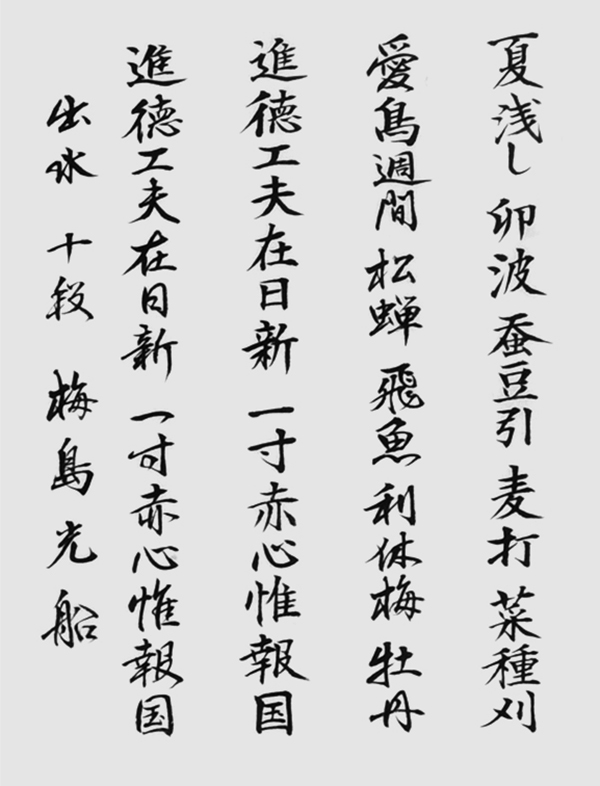 夏浅し 卯波 蚕豆引 麦打 菜種刈
愛鳥週間 松蝉 飛魚 利休梅 牡丹
進徳工夫在日新 一寸赤心惟報国
進徳工夫在日新 一寸赤心惟報国
出水 十段 梅島光船